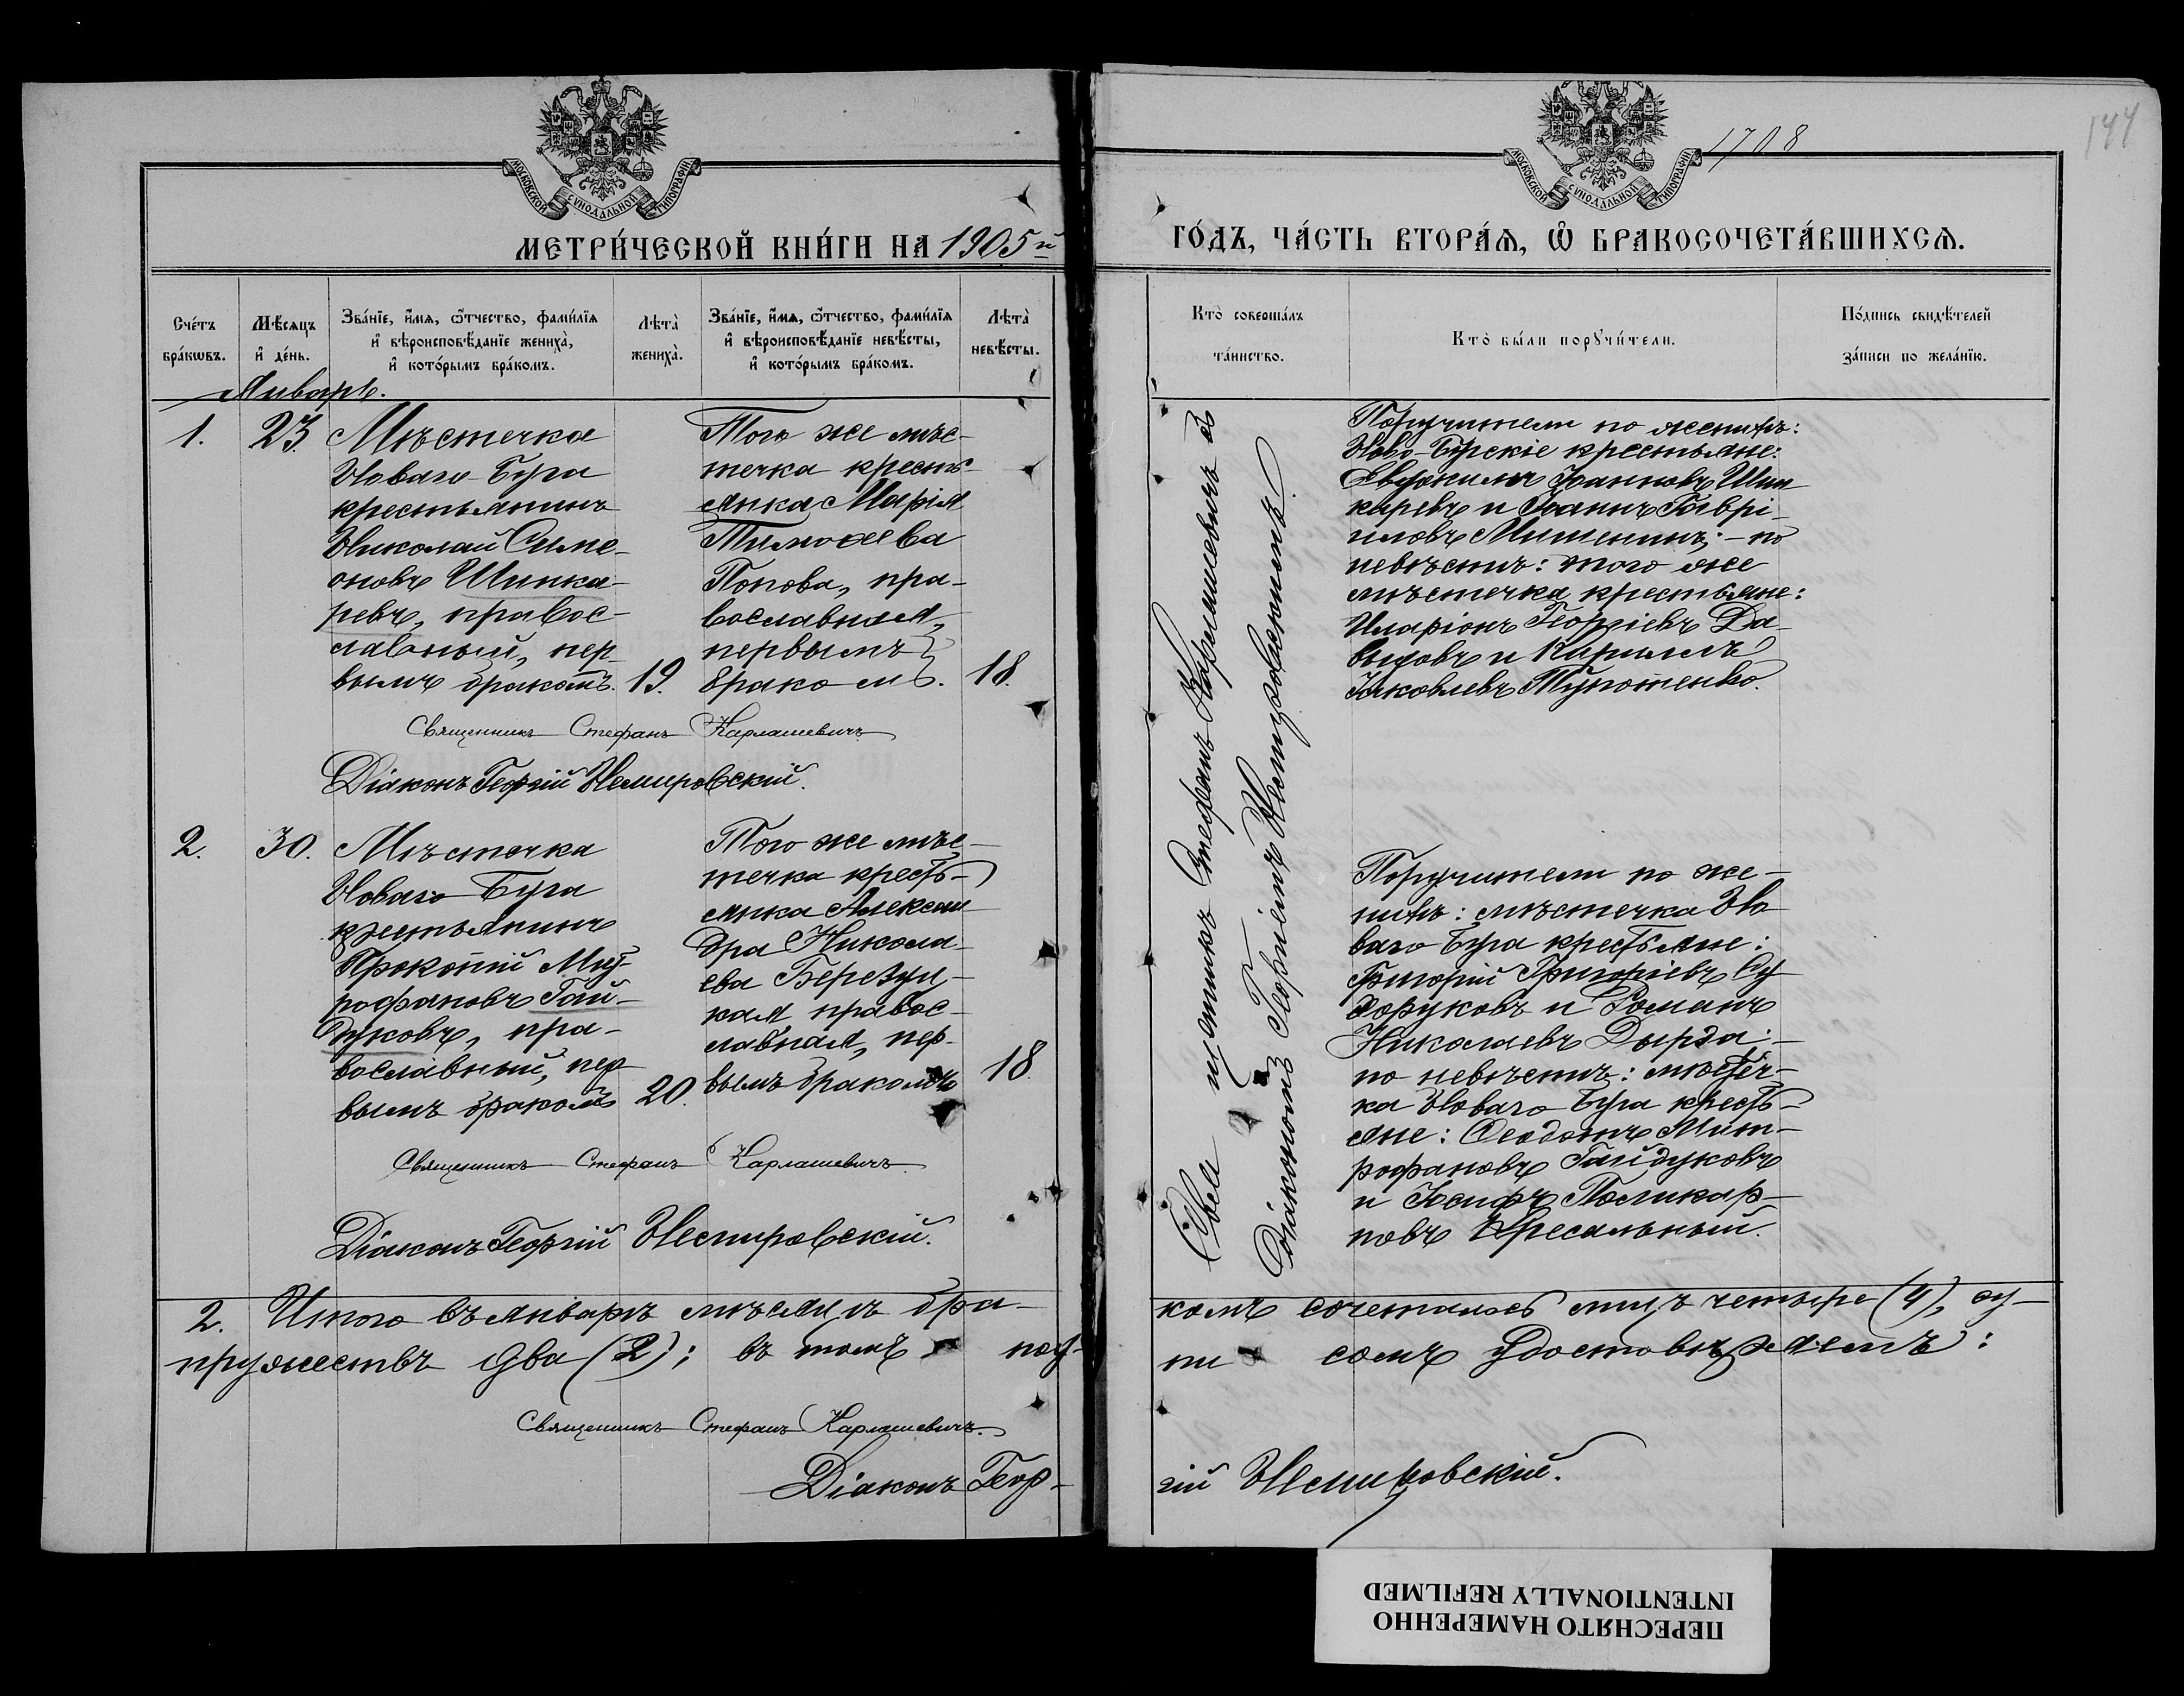 МОСКОВСКОЙ СѴНОДАЛЬНОЙ ТИПОГРАФІИ
МЕТРИ́ЧЕСКОЙ КНИ́ГИ НА 1905й
Сче́тъ бра́кѡвъ.
Мѣ́сѧцъ и҆ де́нь.
Зва́нїе, и҆́мѧ, ѻ҆́тчество, фами́лїѧ и҆ вѣроисповѣ́данїе жениха̀, и҆ кото́рымъ бра́комъ.
Лѣта̀ жениха̀.
Зва́нїе, и҆́мѧ, ѻ҆́тчество, фами́лїѧ и҆ вѣроисповѣ́данїе невѣ́сты, и҆ кото́рымъ бра́комъ.
Лѣта̀ невѣ́сты.
Январь.
1.
23.
Мѣстечка
Новаго-Буга
крестьянинъ
Николай Симе-
оновъ Шинка-
ревъ, правос-
лавный, пер-
вымъ бракомъ.
19.
Того же мѣс-
течка кресть-
янка Марія
Тимоѳеева
Попова, пра-
вославная,
первымъ
бракомъ.
18.
Священникъ Стефанъ Карлашевичъ
Діаконъ Георгій Немировскій.
2.
30.
Мѣстечка
Новаго Буга
крестьянинъ
Прокопій Мит-
рофановъ Гай-
дуковъ, пра-
вославный, пер-
вымъ бракомъ
20.
Того же мѣс-
течка кресть-
янка Алексан-
дра Никола-
ева Березуц-
кая правос-
лавная, пер-
вымъ бракомъ
18.
Священникъ Стефанъ Карлашевичъ.
Діаконъ Георгій Немировскій.
2. Итого въ январѣ мѣсяцѣ бра-
пружествъ два (2); въ томъ и под-
Священникъ Стефанъ Карлашевичъ.
Діаконъ Геор-
1708
144
МОСКОВСКОЙ СѴНОДАЛЬНОЙ ТИПОГРАФІИ
ГО́ДЪ, ЧА́СТЬ ВТОРА́Ѧ, Ѽ БРАКОСОЧЕТА́ВШИХСѦ.
Кто̀ соверша́лъ та́инство.
Кто̀ бы́ли порꙋчи́тели.
По́дпись свидѣ́телей за́писи по жела́нїю.
священникъ Стефанъ Карлашевичъ съ
Діакономъ Георгіемъ Немировскимъ.
Поручители по женихѣ:
Ново-Бугскіе крестьяне:
Евфимъ Іоанновъ Шин-
каревъ и Іоаннъ Гаврі-
иловъ Мишенинъ; - по
невѣстѣ: того же
мѣстечка крестьяне:
Иларіонъ Георгіевъ Да-
выдовъ и Кириллъ
Іаковлевъ Тупотенко.
Поручители по же-
нихѣ: мѣстечка Но-
ваго Буга крестьяне:
Григорій Григоріевъ Су-
хоруковъ и Романъ
Николаевъ Дырда; -
по невѣстѣ: мѣстеч-
ка Новаго Буга кресть-
яне: Ѳеодотъ Мит-
рофановъ Гайдуковъ
и Іосифъ Поликар-
повъ Кресальный.
комъ сочеталось лицъ четыре (4), су-
пи сомъ удостовѣряемъ:
гій Немировскій.
ПЕРЕСНЯТО НАМЕРЕННО
INTENTIONALLY REFILMED